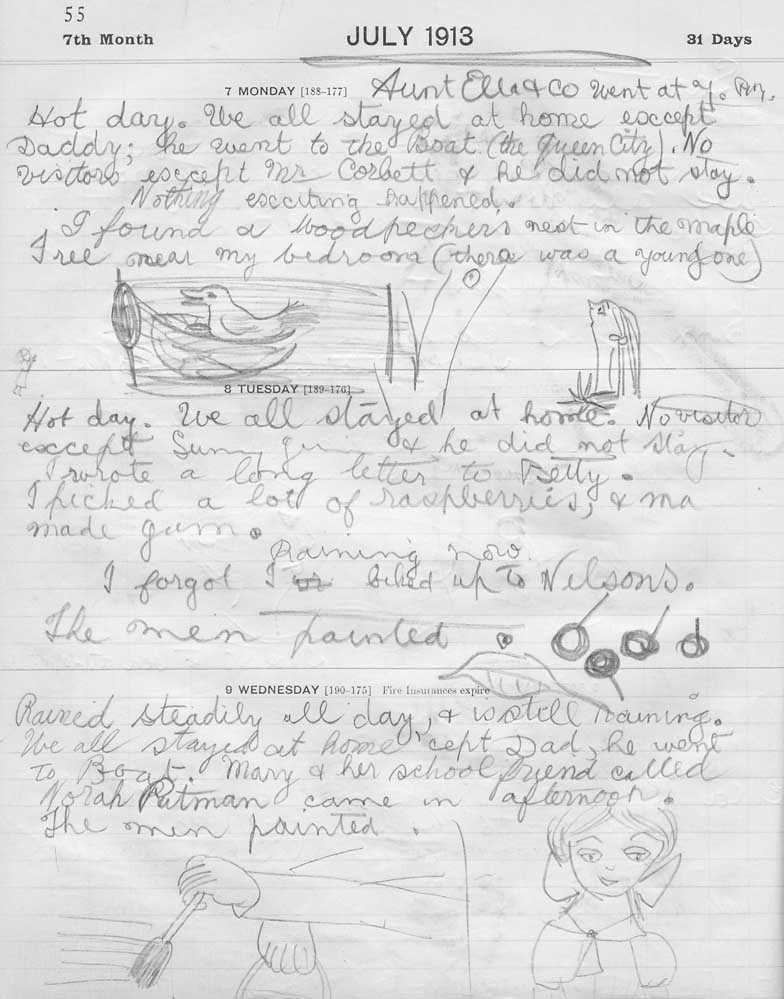 55
7th Month
JULY 1913
31 Days
7 MONDAY [188-177] Aunt Ella & Co went at 7. P.m.
Hot day. We all stayed at home esccept
Daddy; he went to the Boat (the Queen City). No
visitors esccept Mr Corbett & he did not stay.
Nothing escciting happened.
I found a woodpecher's nest in the maple
Tree near my bedroom (there was a young one)
8 TUESDAY [189-176]
Hot day. We all stayed at home. No visitor
esccept Sunny & he did not stay.
I wrote a long letter to Betty.
I picked a lot of raspberries, & ma
made gam.
Raining now.
I forgot I biked up to Nelsons.
The men painted
9 WEDNESDAY [190-175] Fire Insurances expire
Rained steadily all day, & is still raining.
We all stayed at home 'cept Dad, he went
to Boat. Mary & her school friend called
Norah Putman came in afternoon.
The men painted.